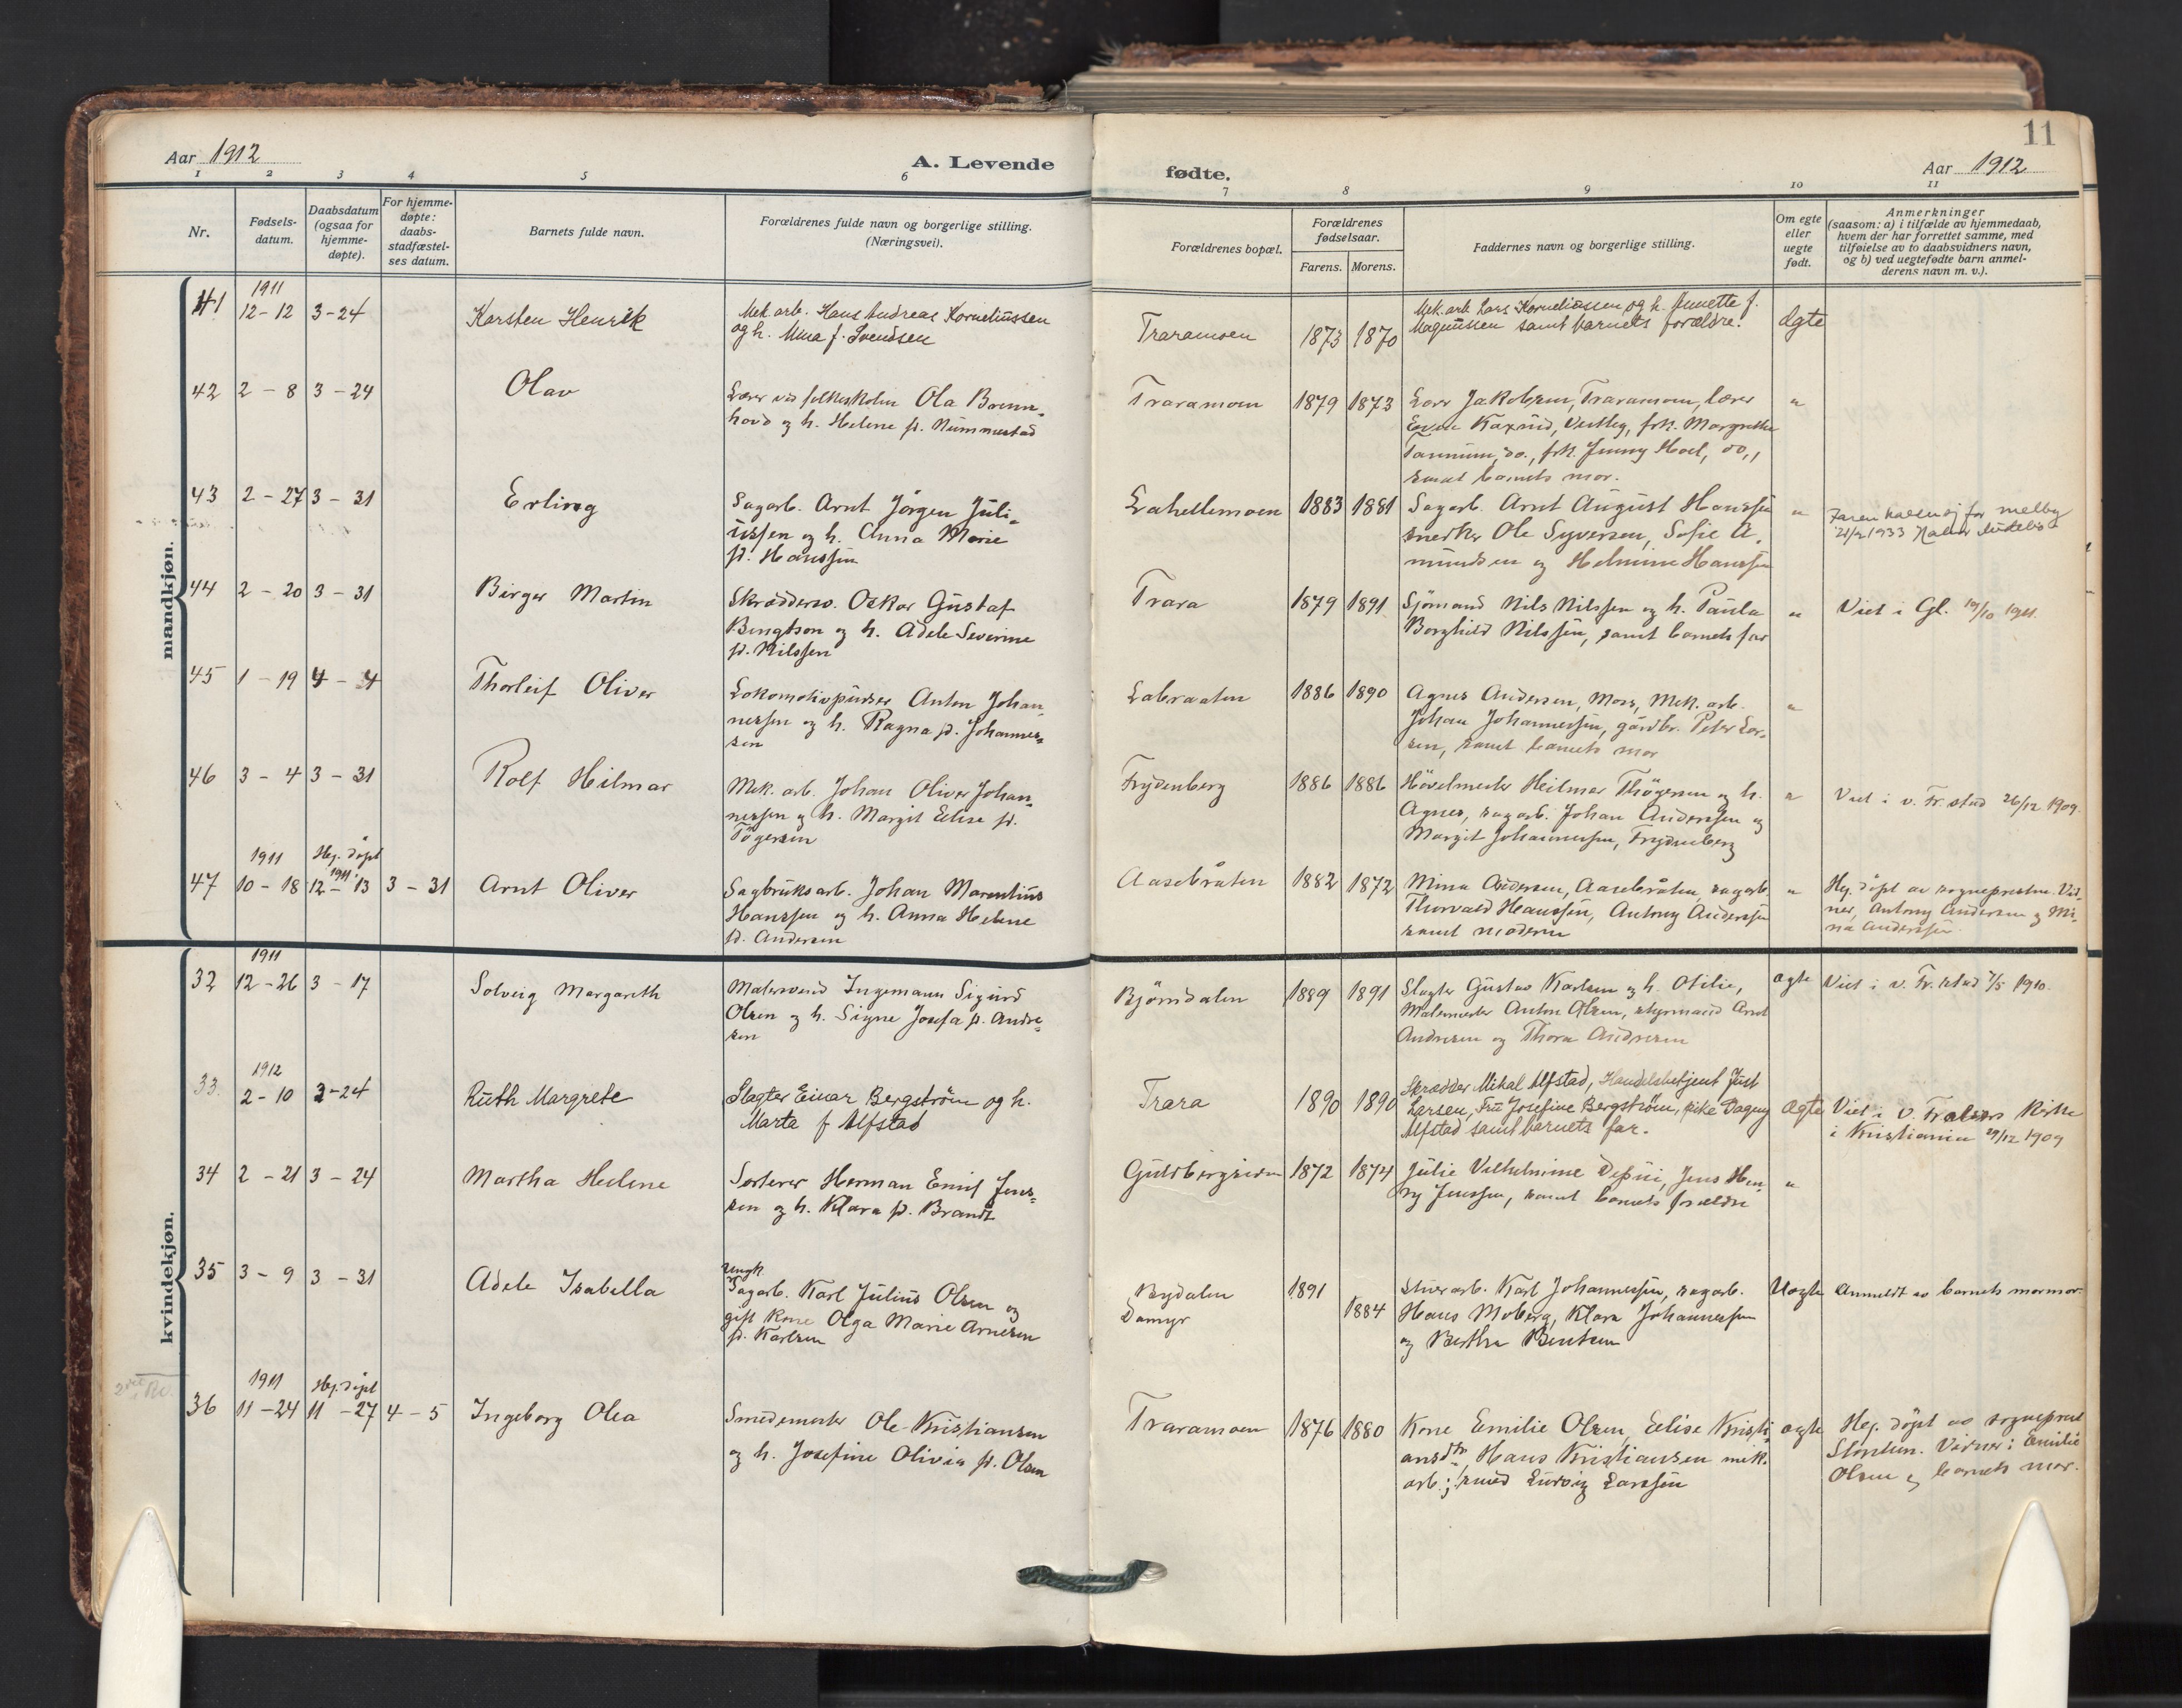 11
Aar 1912
A. Levende
fødte.
Aar 1912
1 2 3 4 5 6 7 8 9 10 11
Nr.
Fødsels-
datum.
Daabsdatum
(ogsaa for
hjemme-
døpte).
For hjemme-
døpte:
daabs-
stadfæstel-
ses datum.
Barnets fulde navn.
Forældrenes fulde navn og borgerlige stilling.
(Næringsvei).
Forældrenes bopæl.
Forældrenes
fødselsaar.
Farens. Morens.
Faddernes navn og borgerlige stilling.
Om egte
eller
uegte
født.
Anmerkninger
(saasom: a) i tilfælde av hjemmedaab,
hvem der har forrettet samme, med
tilføielse av to daabsvidners navn,
og b) ved uegtefødte barn anmel-
derens navn m. v.).
mandkjøn.
1911
41 12-12 3-24
Karsten Henrik
Mek. arb. Hans Andreas Korneliussen
og h. Mina f. Svendsen
Traramoen
1873 1870
Mek. arb. Lars Korneliussen og h. Annette f.
Magnussen samt barnets forældre.
ægte
42 2 - 8 3 - 24
Olav
Lærer ved folkeskolen Ola Brenn-
hovd og h. Helene f. Nummestad
Traramoen
1879 1873
Lars Jakobsen, Traramoen, lærer
frk. Margrethe
do., frk. Jenny Hoel, do.,
samt barnets mor.
"
43 2 - 27 3 - 31
Erling
Sagarb. Arnt Jörgen Juli-
ussen og h. Anna Marie
f. Hanssen
Lahellemoen
1883 1881
Sagarb. Arnt August Hanssen
snedker Ole Syversen, Sofie A-
mundsen og Helmine Hanssen
"
Faren kaller sig for Melby
21/2 1933
44 2 - 20 3 - 31
Birger Martin
Skræddersv. Oskar Gustaf
Bengtson og h. Adele Severine
f. Nilssen
Trara
1879 1891
Sjömand Nils Nilssen og h. Paula
Borghild Nilssen, samt barnets far
"
Viet i Gl. 19/10 1911.
45 1 - 19 4 - 4
Thorleif Oliver
Lokomotivpudser Anton Johan-
nessen og h. Ragna f. Johannes-
sen
Labraaten
1886 1890
Agnes Andersen, Moss, Mek. arb.
Johan Johannessen, gårdbr. Peter Lar-
sen, samt barnets mor
"
46 3 - 4 3 - 31
Rolf Hilmar
Mek. arb. Johan Oliver Johan-
nessen og h. Margit Elise f.
Tögersen
Frydenberg
1886 1886
Hövelmester Heilmar Thögersen og h.
Agnes, sagarb. Johan Anderssen og
Margit Johannessen, Frydenberg
"
Viet i v. Fr.stad 26/12 1909.
1911 Hj. döpt
1911
47 10 - 18 12 - 13 3 - 31
Arnt Oliver
Sagbruksarb. Johan Marentius
Hanssen og h. Anna Helene
f. Andersen
Aasebråten
1882 1872
Mina Andersen, Aasebråten, sagarb.
Thorvald Hanssen, Antony Anderssen
samt moderen
"
Hj. döpt av sognepresten. Vid-
ner, Antony Andersen og Mi-
na Anderssen.
kvindekjøn.
1911
32 12-26 3 - 17
Solveig Margareth
Malersvend Ingemann Sigurd
Olsen og h. Signe Josefa f. Andre-
sen
Björndalen
1889 1891
Slagter Gustav Karlsen og h. Otilie,
Malermester Anton Olsen, styrmand Arnt
Andresen og Thora Andresen
ægte
Viet i v. Fr.stad 7/5 1910.
1912
33. 2-10 3-24
Ruth Margrete
Slagter Einar Bergström og h.
Marta f Alfstad
Trara
1890 1890
Skrædder Mikal Alfstad, Handelsbetjent Just
Larsen, Fru Josefine Bergström, pike Dagny
Alfstad samt barnets far.
ægte
Viet i V. Frelsers Kirke
i Kristiania 29/12 1909
34 2 - 21 3 - 24
Martha Helene
Sorterer Herman Emil Jens-
sen og h. Klara f. Brandt
Guldbergsiden
1872 1874
Julie Vilhelmine Depui, Jens Hen-
ry Jenssen, samt barnets forældre
"
35 3 - 9 3 - 31
Adele Isabella
Ungk.
Sagarb. Karl Julius Olsen og
gift Kone Olga Marie Arnesen
f. Karlsen
Nydalen
Damyr
1891
1884
Stuerarb. Karl Johannessen, sagarb.
Hans Moberg, Klara Johannessen
og Berthe Bentsen
Uægte
Anmeldt av barnets mormor.
1911 Hj. döpt
36 11 - 24 11 - 27 4 - 5
Ingeborg Olea
Smedemester Ole Kristiansen
og h. Josefine Olivia f. Olsen
Traramoen
1876 1880
Kone Emilie Olsen, Elise Kristi-
ansdtr. Hans Kristiansen mek.
arb.; smed Ludvig Larssen
ægte
Hej. döpt av sogneprest
Vidner: Emilie
Olsen og barnets mor.